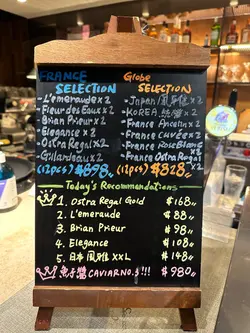 FRANCE
SELECTION
- L'emeraude x 2
- Fleur des Eaux x 2
- Brian Prieur x 2
- Elegance x 2
- Ostra Regal x 2
- Gillardeau x 2
(12pcs) $898
Globe
SELECTION
- Japan 風雅 x 2
- KOREA x 2
- France Ancelin x 2
- France CUVÉE x 2
- France ROSE BLANC x 2
- France Ostra Regal x 2
(12pcs) $828
Today's Recommendations
1. Ostra Regal Gold $168
2. L'emeraude $88
3. Brian Prieur $98
4. Elegance $108
5. 日本 風雅 XXL $148
魚子醬 CAVIAR NO.5 !!! $980